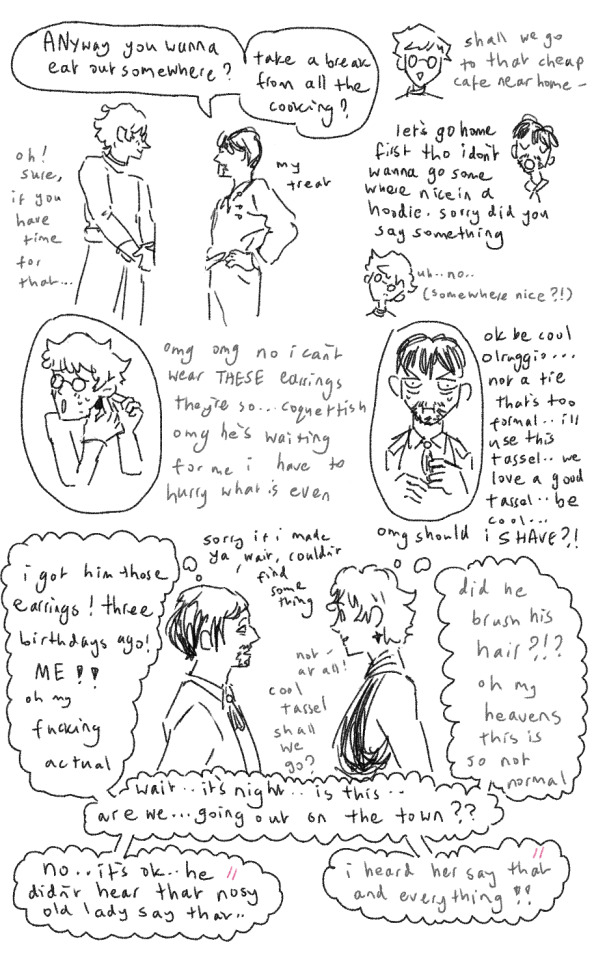 ANyway you wanna
eat out somewhere?
take a break
from all the
cooking?
shall we go
to that cheap
cafe near home -
oh!
sure,
if you
have
time
for
that...
my
treat
let's go home
first tho i don't
wanna go some
where nice in a
hoodie. sorry did you
say something
uh..no..
(somewhere nice?!)
omg omg no i can't
wear THESE earrings
they're so... coquettish
omg he's waiting
for me i have to
hurry what is even
ok be cool
olruggio...
not a tie
that's too
formal.. i'll
use this
tassel.. we
love a good
tassel.. be
cool...
omg should i SHAVE?!
i got him those
earrings! three
birthdays ago!
ME !!
oh my
fucking
actual
sorry if i made
ya wait, couldn't
find
some
thing
not -
at all!
cool
tassel
shall
we
go?
did he
brush his
hair?!?
oh my
heavens
this is
so not
normal
wait.. it's night.. is this..
are we... going out on the town??
no.. it's ok.. he
didn't hear that nosy
old lady say that..
i heard her say that
and everything!!